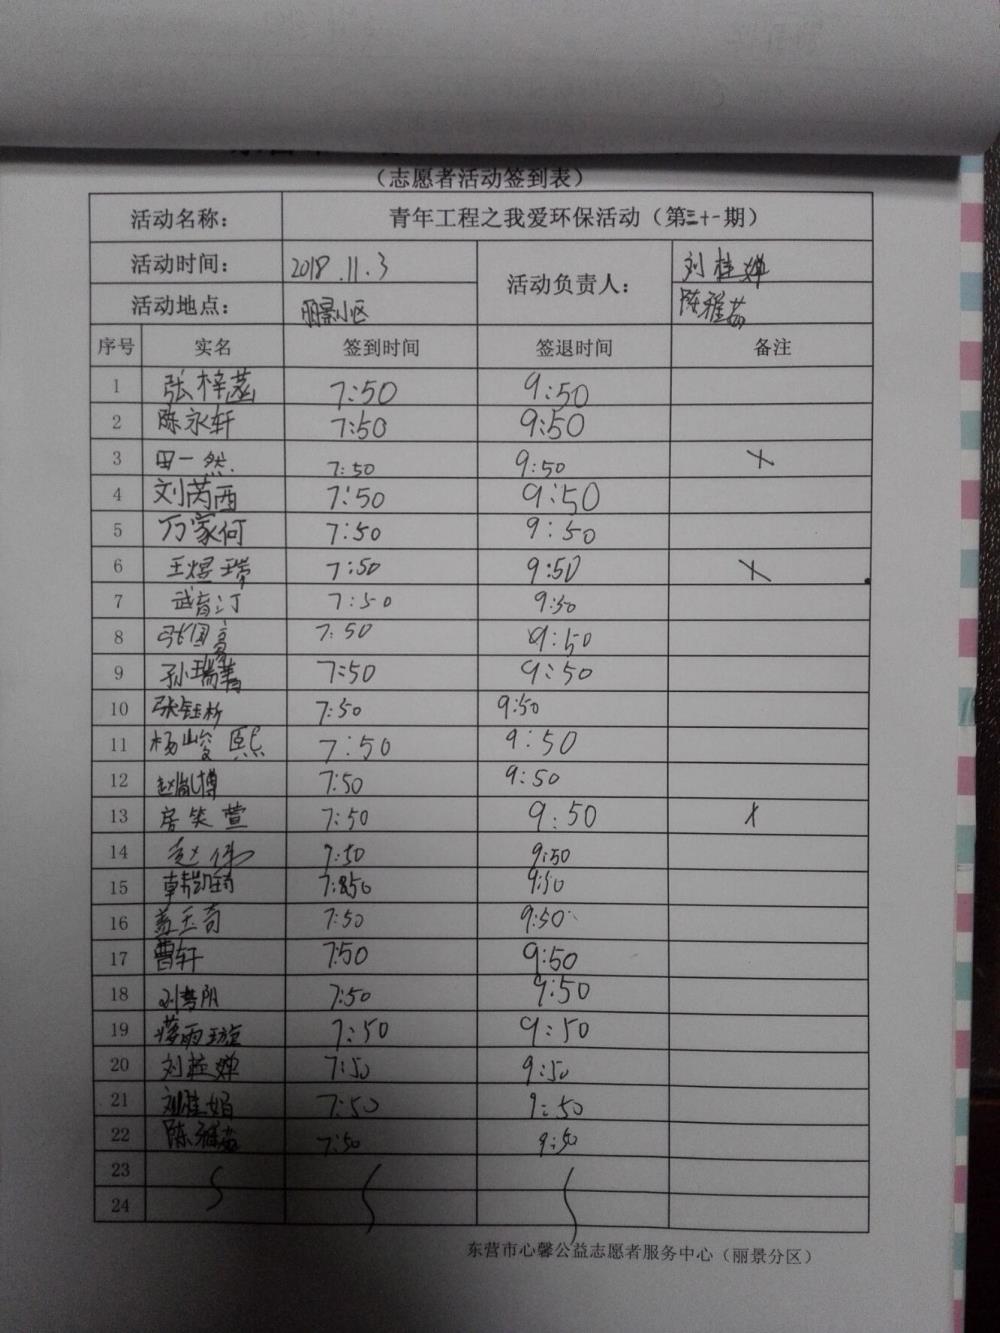 （志愿者活动签到表）
活动名称： 青年工程之我爱环保活动（第三十一期）
活动时间： 2018.11.3 活动负责人： 刘桂婵
活动地点： 丽景小区 陈雅茹
序号 实名 签到时间 签退时间 备注
1 张梓菡 7:50 9:50
2 陈永轩 7:50 9:50
3 田一然 7:50 9:50 X
4 刘芮西 7:50 9:50
5 万家何 7:50 9:50
6 王煜瑞 7:50 9:50 X
7 武育汀 7:50 9:50
8 张国豪 7:50 9:50
9 孙瑞菁 7:50 9:50
10 张钰析 7:50 9:50
11 杨峻熙 7:50 9:50
12 赵胤博 7:50 9:50
13 房笑萱 7:50 9:50 X
14 赵伟 7:50 9:50
15 韩凯琦 7:850 9:50
16 盖玉奇 7:50 9:50
17 曹轩 7:50 9:50
18 刘梦阳 7:50 9:50
19 蒋雨璇 7:50 9:50
20 刘桂婵 7:50 9:50
21 刘桂娟 7:50 9:50
22 陈雅茹 7:50 9:50
23
24
东营市心馨公益志愿者服务中心（丽景分区）